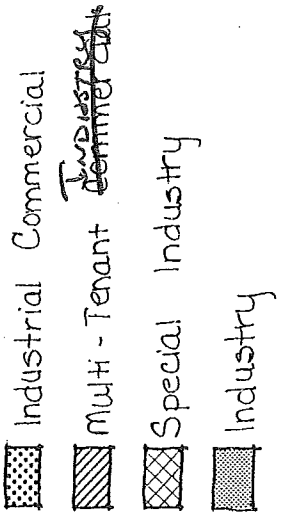 Industrial Commercial
Multi-Tenant Commercial INDUSTRY
Special Industry
Industry